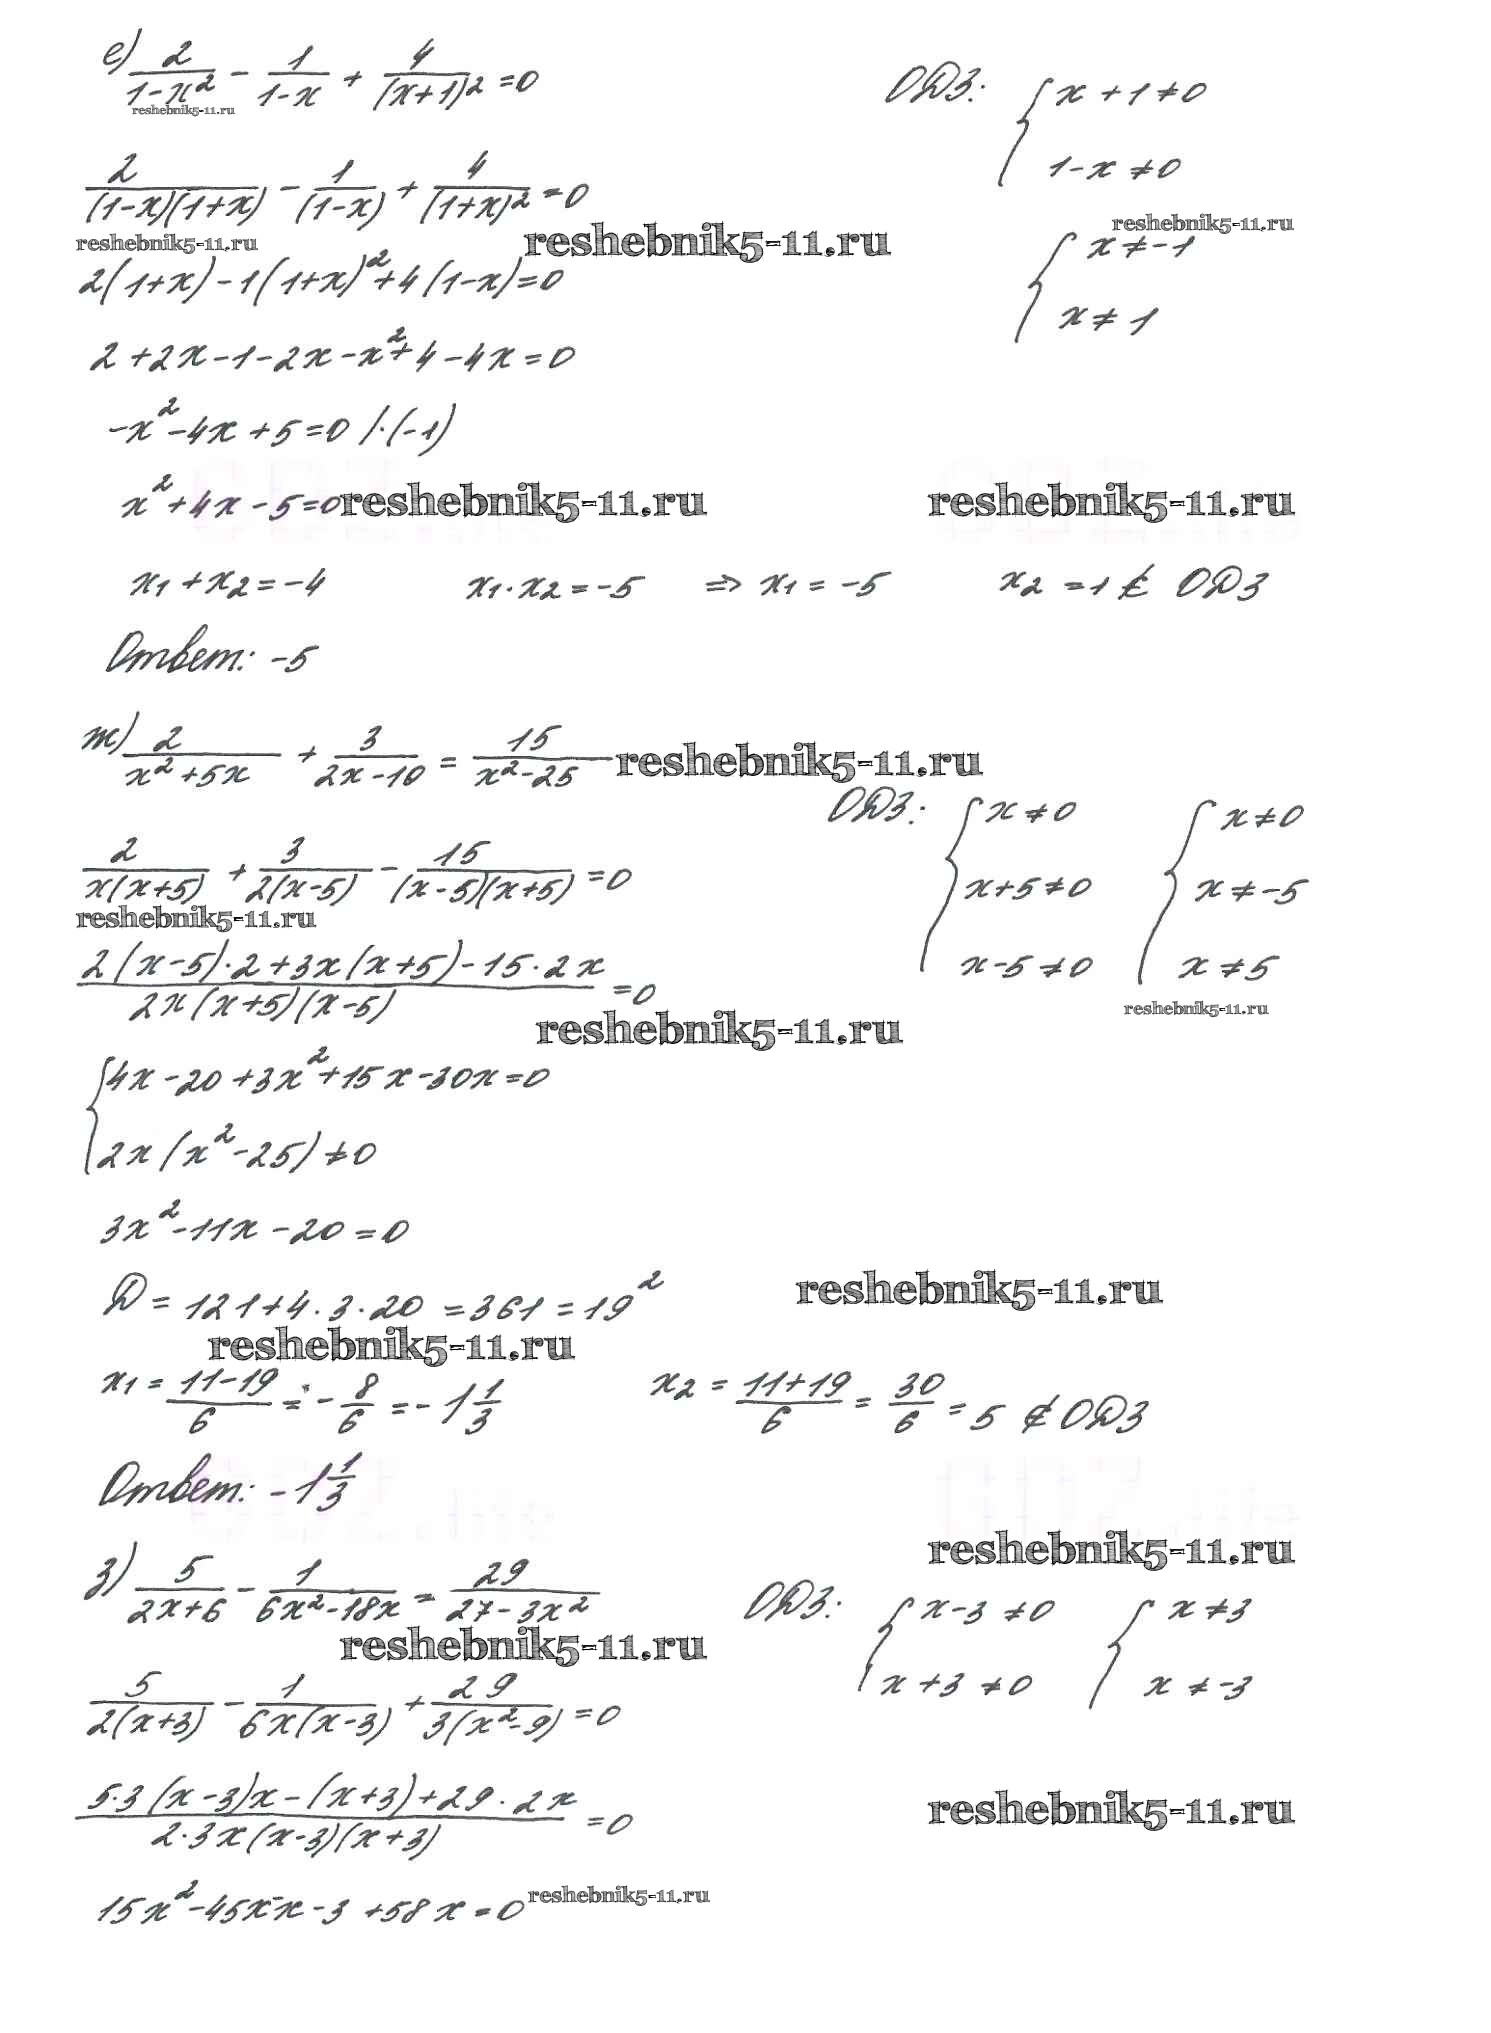 е) 2/(1-x²) - 1/(1-x) + 4/(x+1)² = 0
ОДЗ: { x+1≠0
1-x≠0
reshebnik5-11.ru
2/((1-x)(1+x)) - 1/(1-x) + 4/(1+x)² = 0
reshebnik5-11.ru
reshebnik5-11.ru
reshebnik5-11.ru
{ x≠-1
x≠1
2(1+x)-1(1+x)²+4(1-x)=0
2+2x-1-2x-x²+4-4x=0
-x²-4x+5=0 /·(-1)
x²+4x-5=0
reshebnik5-11.ru
reshebnik5-11.ru
x₁+x₂=-4 x₁·x₂=-5 => x₁=-5 x₂=1 ∉ ОДЗ
Ответ: -5
ж) 2/(x²+5x) + 3/(2x-10) = 15/(x²-25)
reshebnik5-11.ru
ОДЗ: { x≠0 { x≠0
x+5≠0 x≠-5
x-5≠0 x≠5
2/(x(x+5)) + 3/(2(x-5)) - 15/((x-5)(x+5)) = 0
reshebnik5-11.ru
reshebnik5-11.ru
(2(x-5)·2+3x(x+5)-15·2x)/(2x(x+5)(x-5)) = 0
reshebnik5-11.ru
{ 4x-20+3x²+15x-30x=0
2x(x²-25)≠0
3x²-11x-20=0
D=121+4·3·20=361=19²
reshebnik5-11.ru
reshebnik5-11.ru
x₁ = (11-19)/6 = -8/6 = -1 1/3 x₂ = (11+19)/6 = 30/6 = 5 ∉ ОДЗ
Ответ: -1 1/3
reshebnik5-11.ru
з) 5/(2x+6) - 1/(6x²-18x) = 29/(27-3x²)
ОДЗ: { x-3≠0 { x≠3
x+3≠0 x≠-3
reshebnik5-11.ru
5/(2(x+3)) - 1/(6x(x-3)) + 29/(3(x²-9)) = 0
(5·3(x-3)x-(x+3)+29·2x)/(2·3x(x-3)(x+3)) = 0
reshebnik5-11.ru
15x²-45x-x-3+58x=0
reshebnik5-11.ru